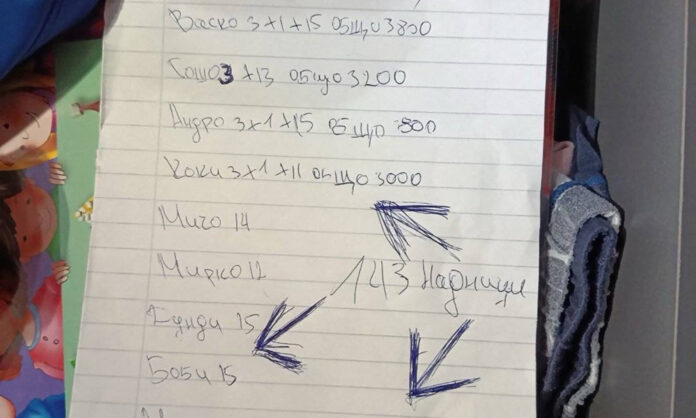 Васко 3х1+15 общо 3800
Сашо 3 +13 общо 3200
Андро 3х1 +15 общо 800
Коки 3х1 +11 общо 3000
Мичо 14
Мирко 12
143 Надници
15
Боби 15